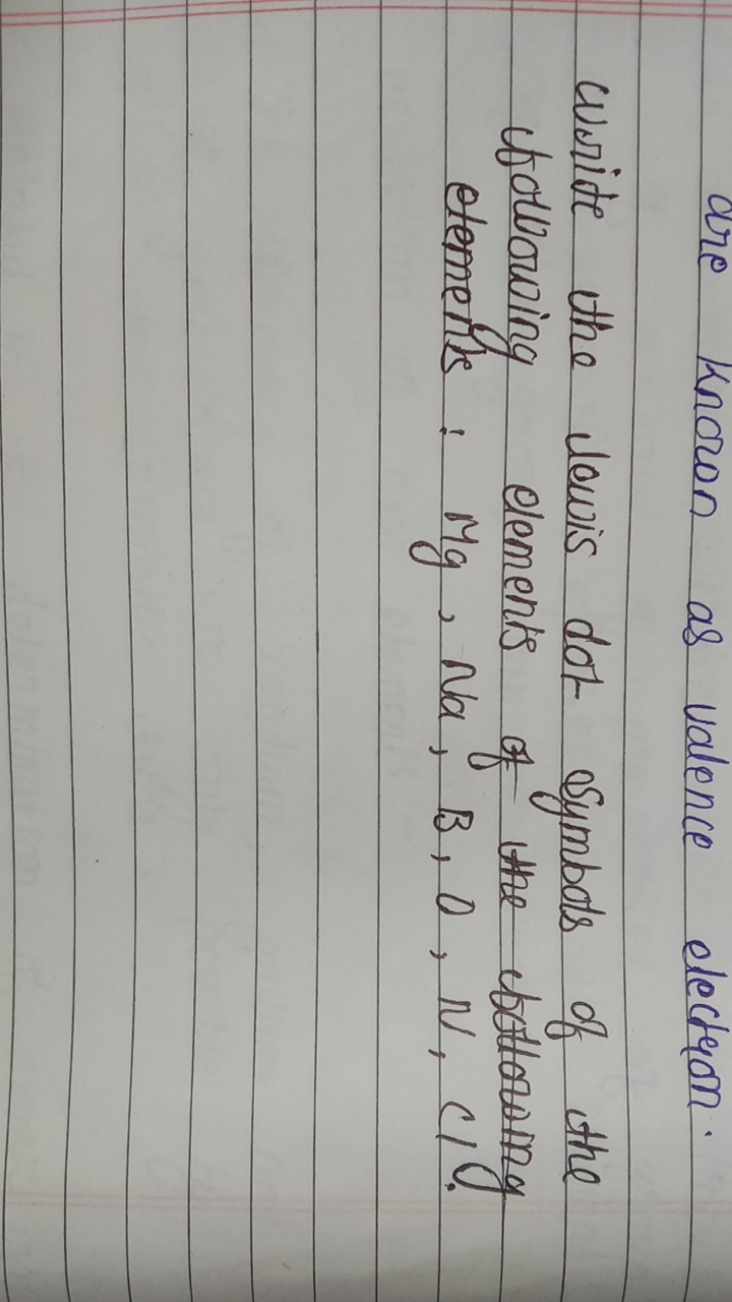 are known as valence electron.
write the lewis dot symbols of the
following elements of the following
elements : Mg, Na, B, O, N, Cl.